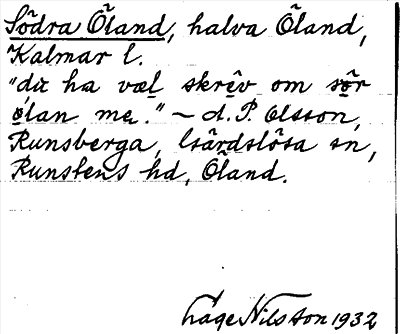 Södra Öland, halva Öland,
Kalmar l.
"du ha væl skrêv om sôr
ølan me." - A. P. Olsson,
Runsberga, Gärdslösa sn,
Runstens hd, Öland.
Låge Nilsson 1932